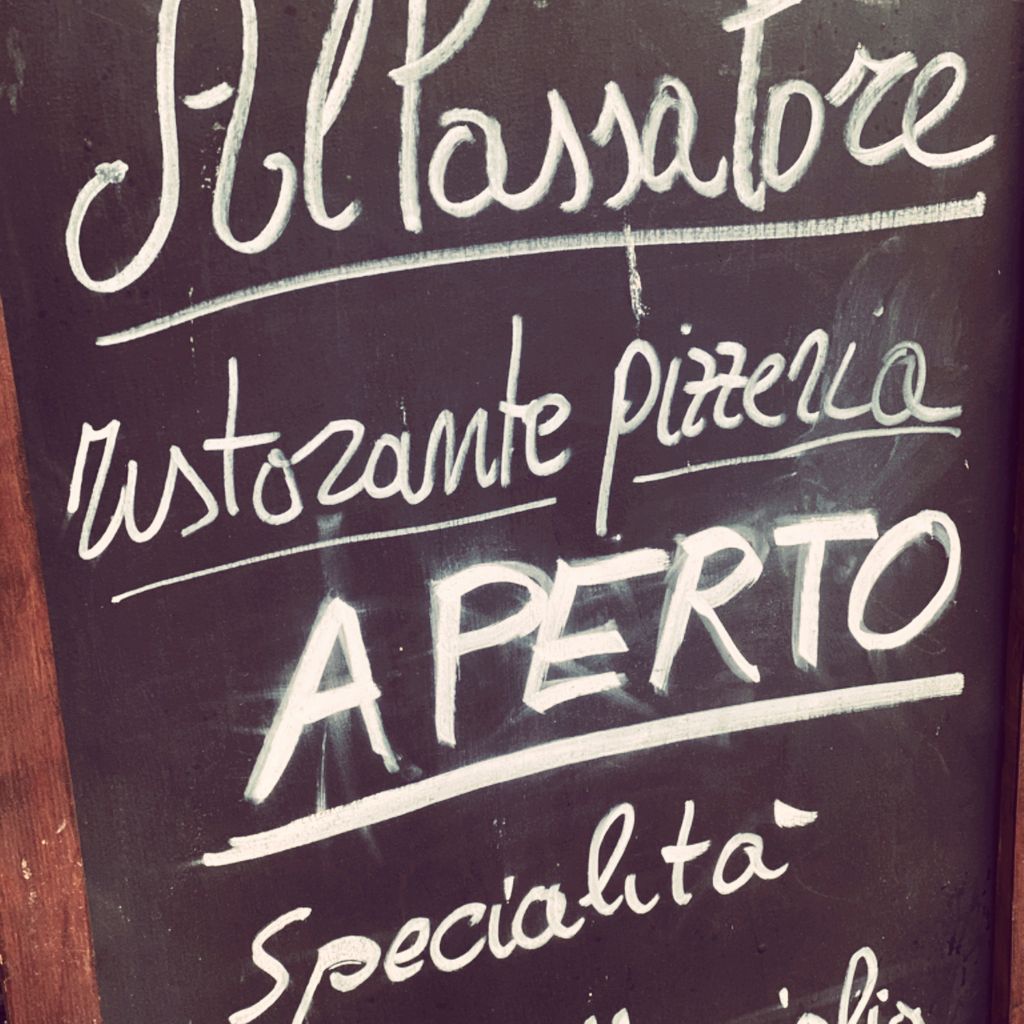 Al Passatore
ristorante pizzeria
APERTO
Specialità